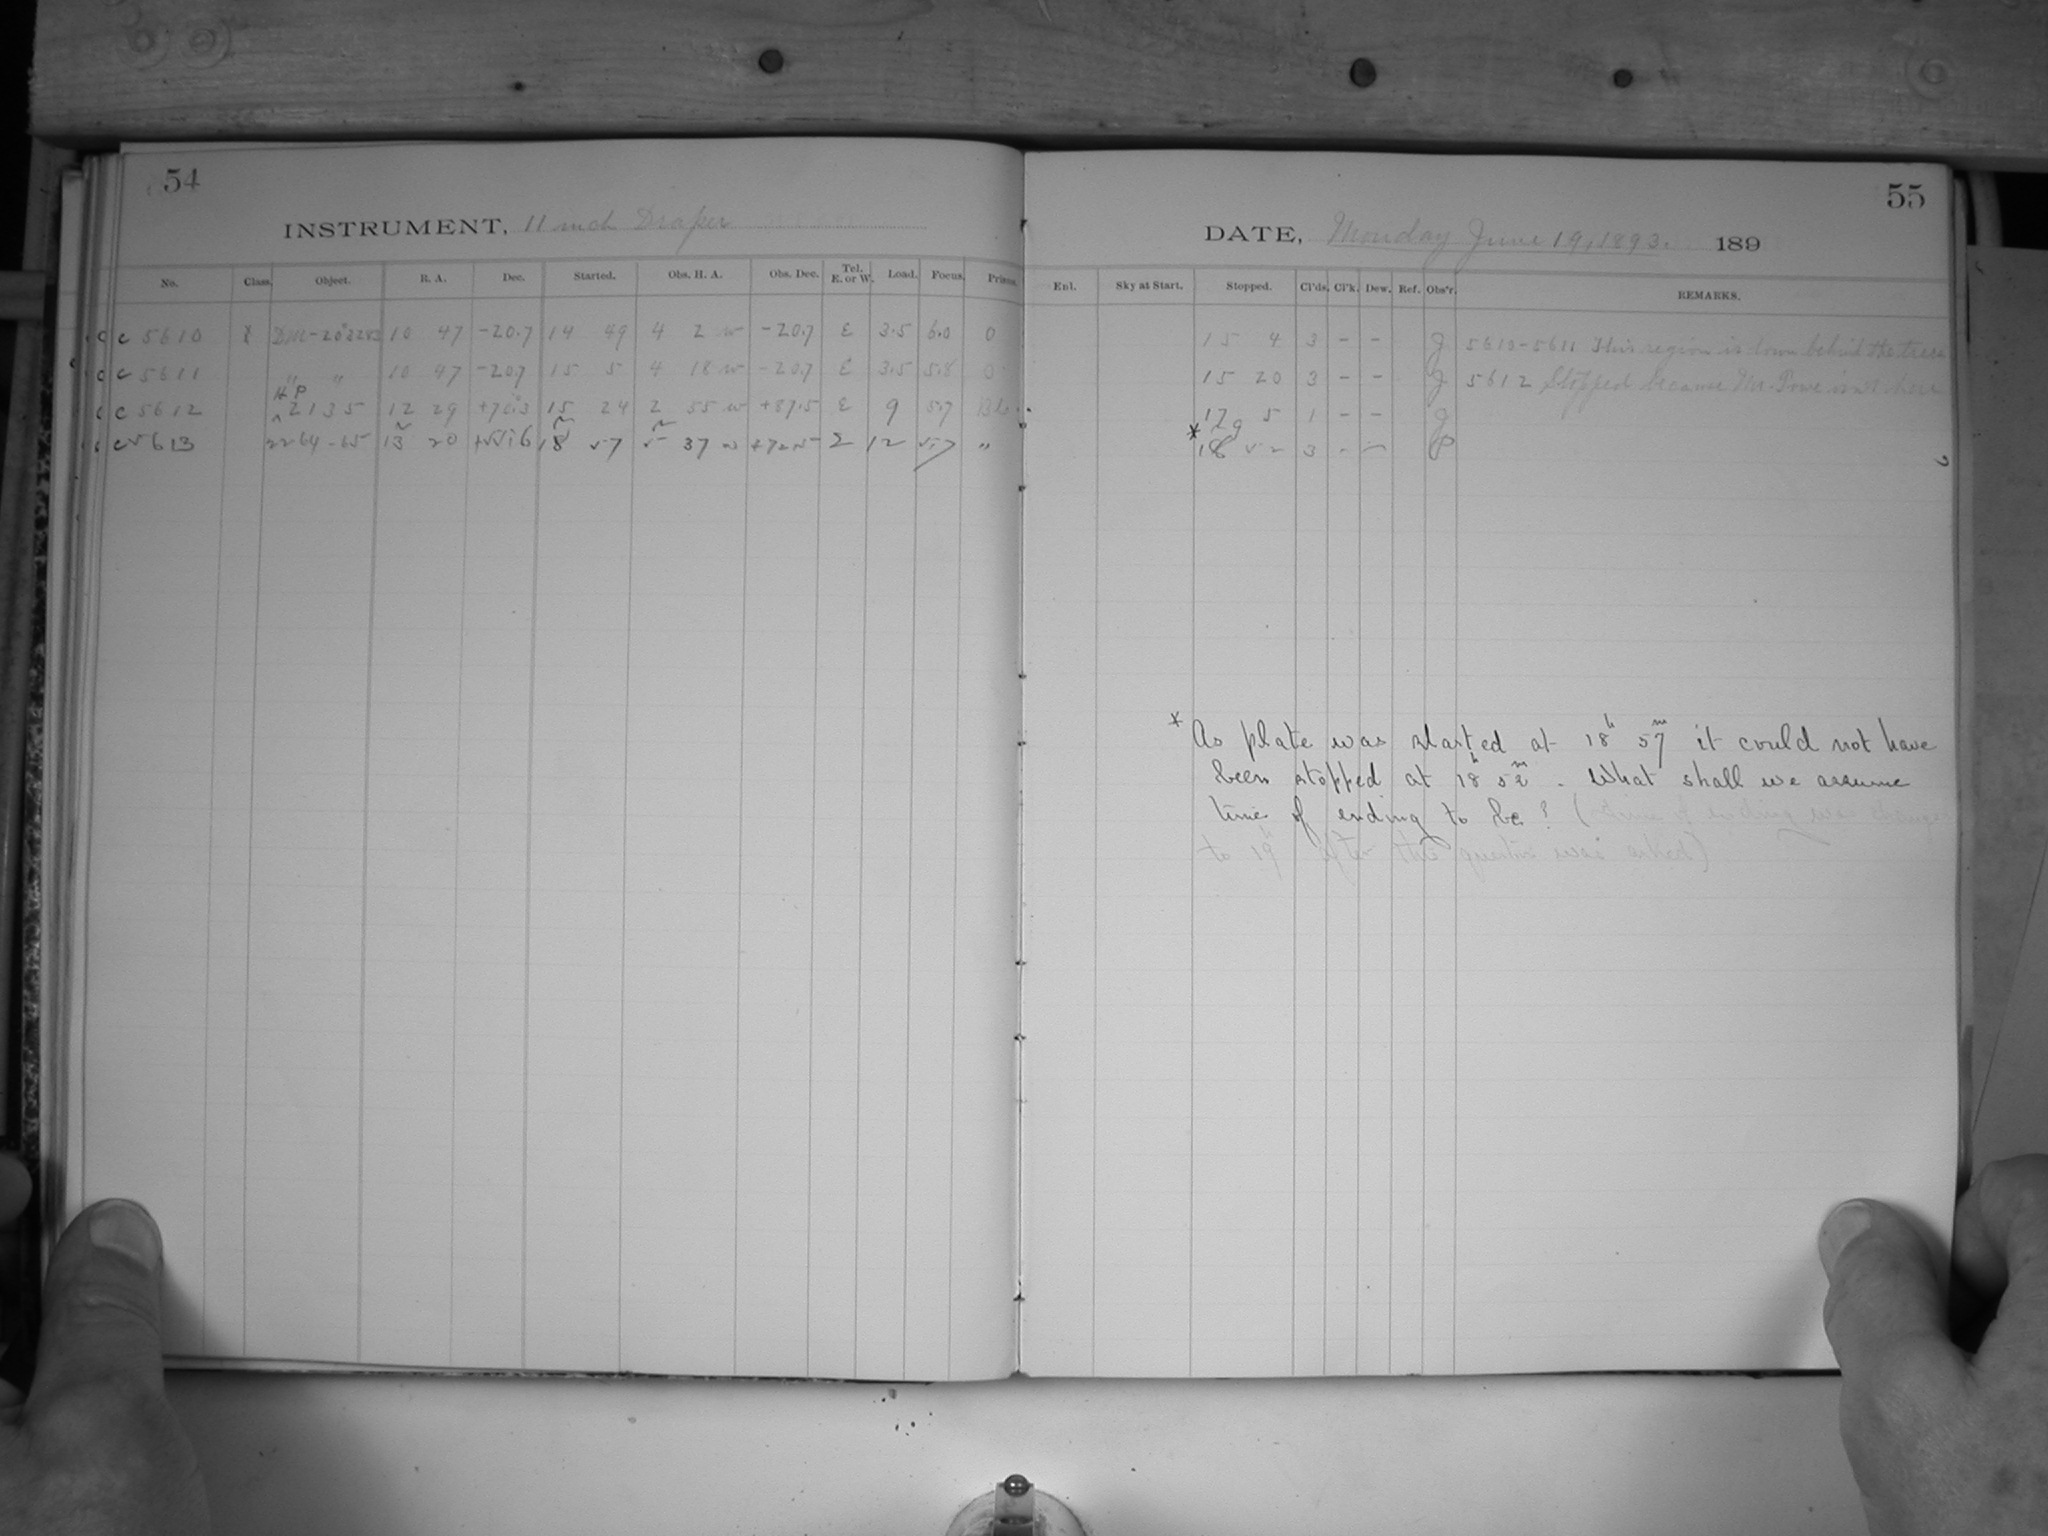 54
INSTRUMENT, 11 inch Draper
No. Class. Object. R. A. Dec. Started. Obs. H. A. Obs. Dec. Tel. E. or W. Load. Focus. Prisms.
c 5610 DM-20°2283 10 47 -20.7 14 49 4 2 w -20.7 E 3.5 6.0 0
c 5611 " " 10 47 -20.7 15 5 4 18 w -20.7 E 3.5 5.8 0
H P
c 5612 2135 12 29 +70.3 15 24 2 55 w +87.5 E 9 5.7
c 5613 2264-65 13 20 18 57 5 37 w +72.5 E 12 5.7 "
55
DATE, Monday June 19, 1893. 189
Enl. Sky at Start. Stopped. Cl'ds. Cl'k. Dew. Ref. Obs'r. REMARKS.
15 4 3 - - J 5610-5611 This region is down behind the trees
15 20 3 - - J 5612 Stopped because Mr. is not here
17 5 1 - - J
9
* 18 52 3 - - P
* As plate was started at 18h 57m it could not have
been stopped at 18h 52m. What shall we assume
time of ending to be? (time of ending was
to 19h after the question was asked)